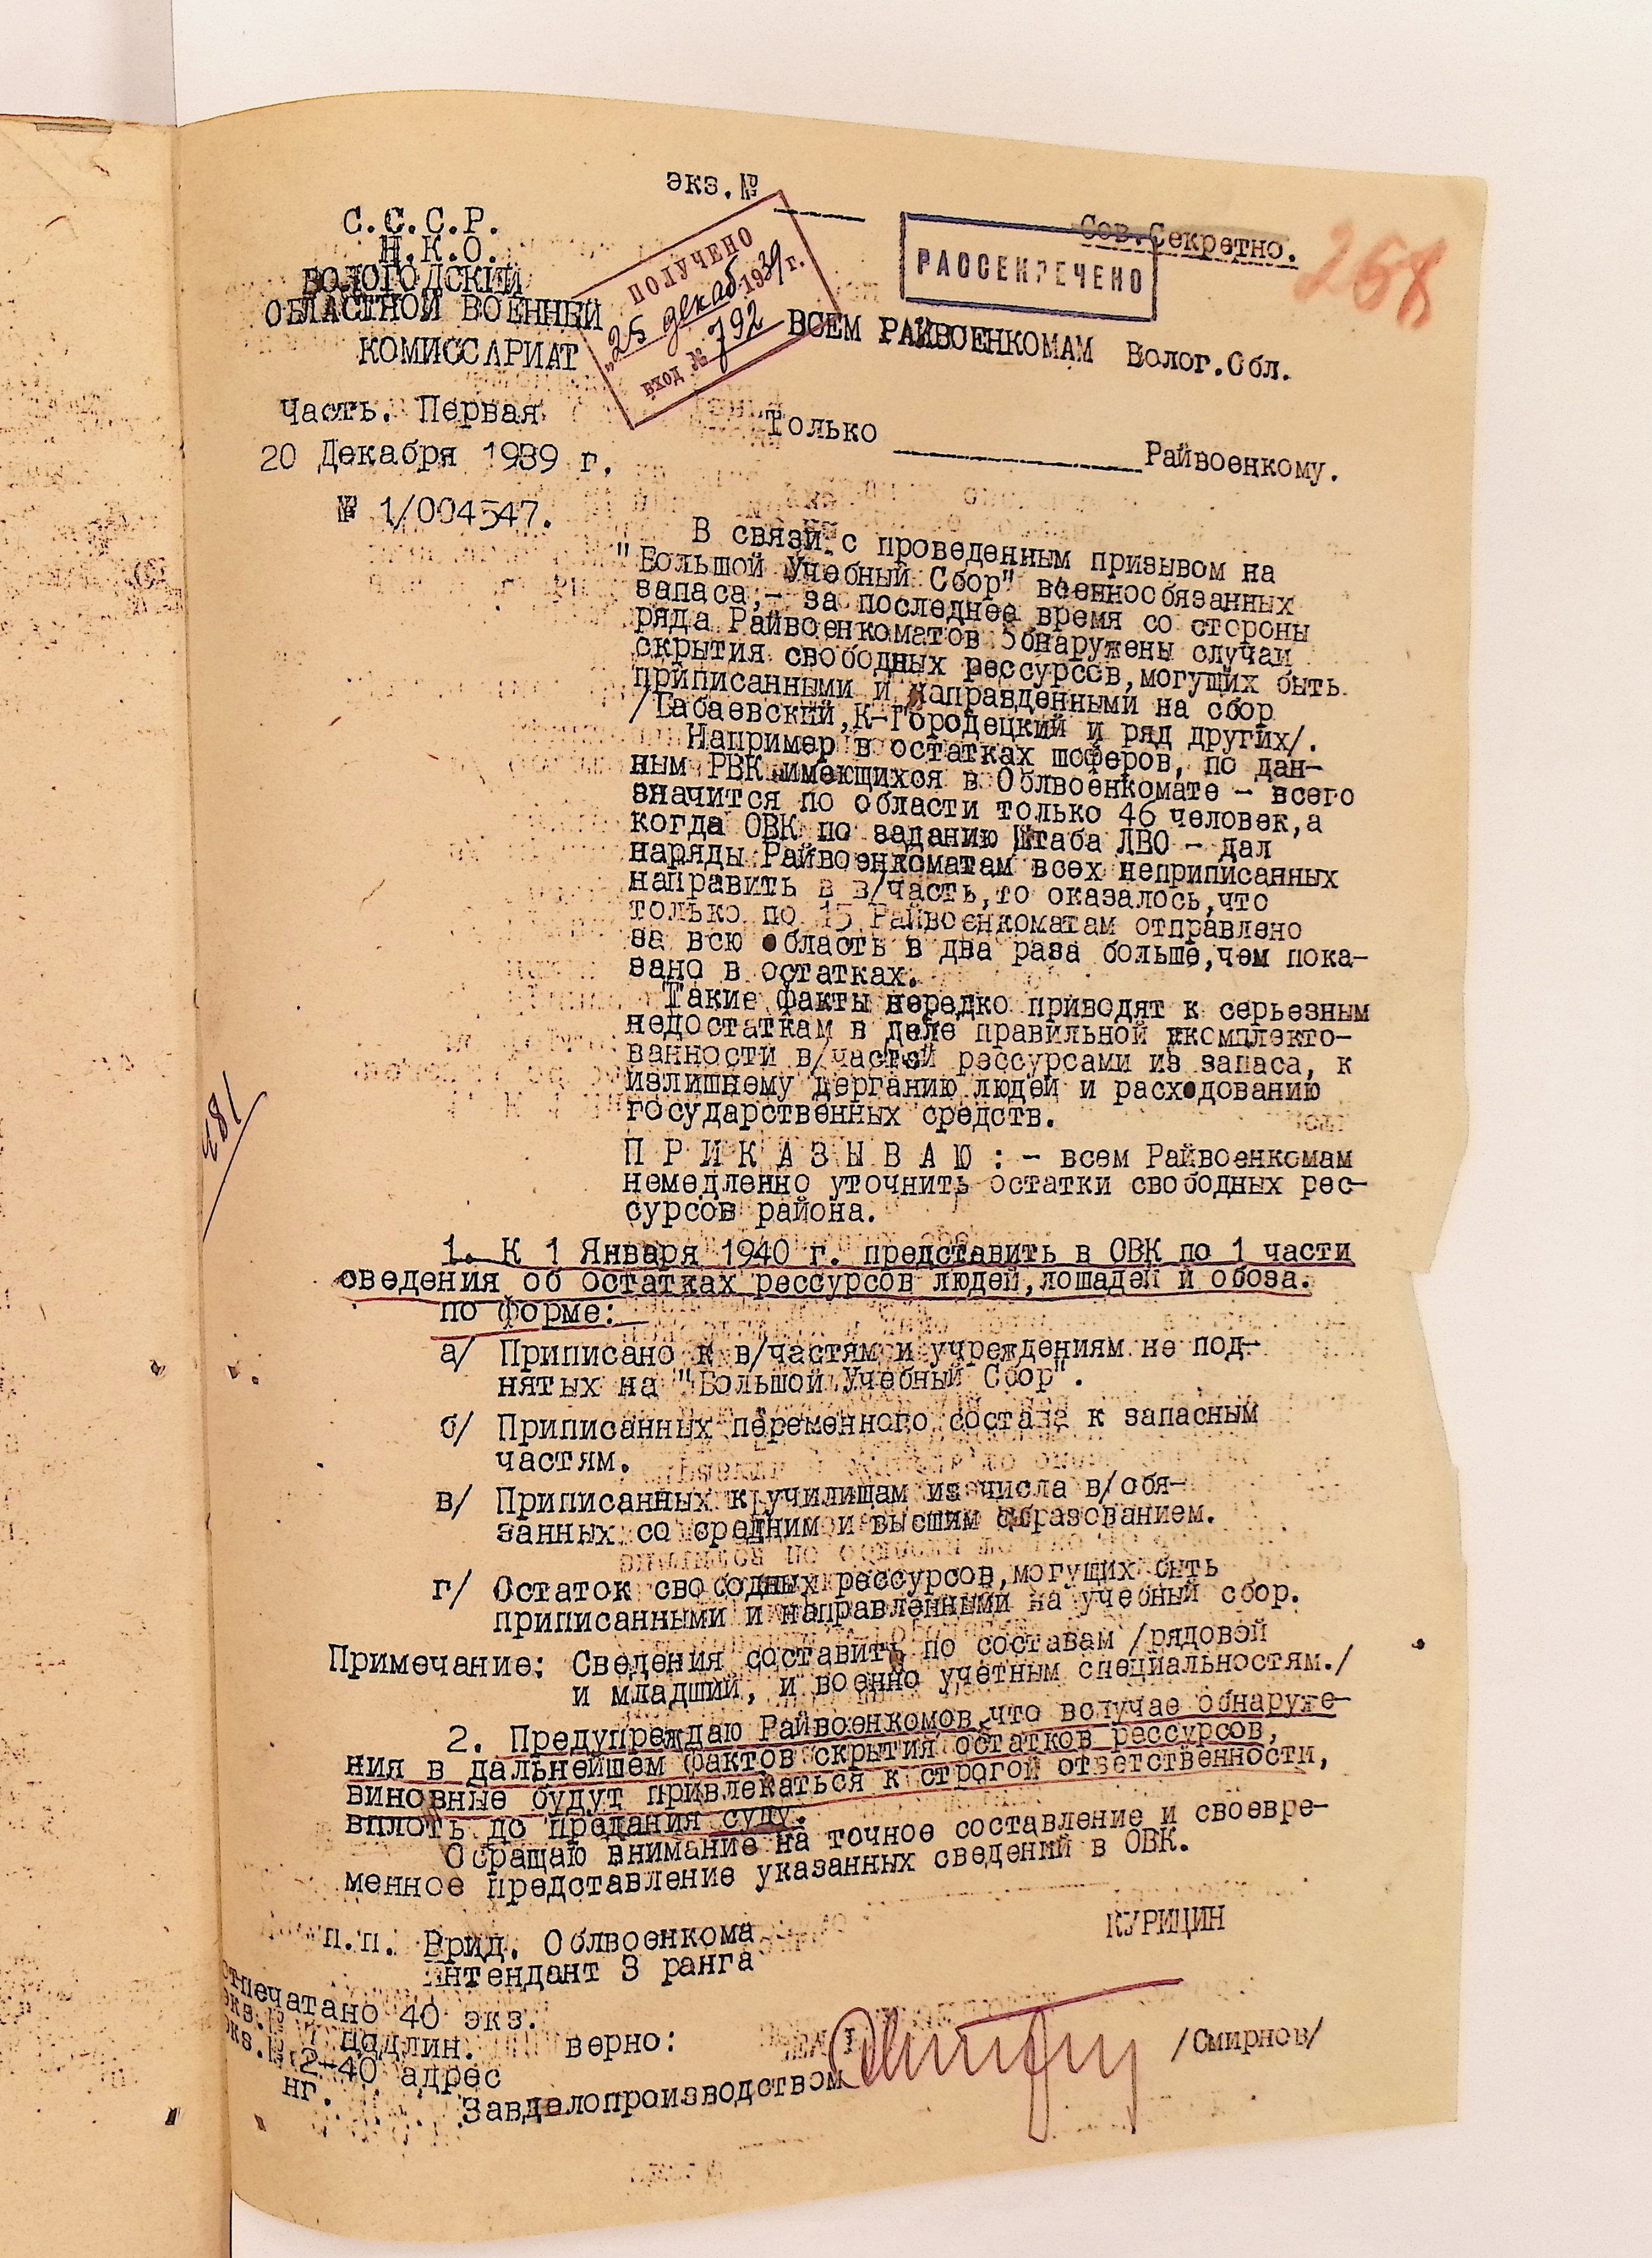 экз.№
С.С.С.Р.
Н.К.О.
ВОЛОГОДСКИЙ
ОБЛАСТНОЙ ВОЕННЫЙ
КОМИССАРИАТ
ПОЛУЧЕНО
"25 декаб 1939 г.
вход. № 792
Сов.Секретно.
РАССЕКРЕЧЕНО
268
ВСЕМ РАЙВОЕНКОМАМ Волог.Обл.
Часть. Первая
20 Декабря 1939 г.
№ 1/004547.
Только Райвоенкому.
В связи с проведенным призывом на
"Большой Учебный Сбор" военнообязанных
запаса,- за последнее время со стороны
ряда Райвоенкоматов обнаружены случаи
скрытия свободных рессурсов,могущих быть
приписанными и направленными на сбор
/Бабаевский,К-Городецкий и ряд других/.
Например в остатках шоферов, по дан-
ным РВК имеющихся в Облвоенкомате - всего
значится по области только 46 человек,а
когда ОВК по заданию Штаба ЛВО - дал
наряды Райвоенкоматам всех неприписанных
направить в в/часть,то оказалось,что
только по 15 Райвоенкоматам отправлено
за всю область в два раза больше,чем пока-
зано в остатках.
Такие факты нередко приводят к серьезным
недостаткам в деле правильной укомплекто-
ванности в/частей рессурсами из запаса, к
излишнему дерганию людей и расходованию
государственных средств.
П Р И К А З Ы В А Ю : - всем Райвоенкомам
немедленно уточнить остатки свободных рес-
сурсов района.
481
1. К 1 Января 1940 г. представить в ОВК по 1 части
сведения об остатках рессурсов людей,лошадей и обоза.
по форме:
а/ Приписано к в/частям и учреждениям не под-
нятых на "Большой Учебный Сбор".
б/ Приписанных переменного состава к запасным
частям.
в/ Приписанных к училищам из числа в/обя-
занных со средним и высшим образованием.
г/ Остаток свободных рессурсов,могущих быть
приписанными и направленными на учебный сбор.
Примечание: Сведения составить по составам /рядовой
и младший, и военно учетным специальностям./
2. Предупреждаю Райвоенкомов,что вслучае обнаруже-
ния в дальнейшем фактов скрытия остатков рессурсов,
виновные будут привлекаться к строгой ответственности,
вплоть до предания суду.
Обращаю внимание на точное составление и своевре-
менное представление указанных сведений в ОВК.
п.п. Врид. Облвоенкома
Интендант 3 ранга
КУРИЦИН
отпечатано 40 экз.
экз.№ 1 подлин.
экз.№ 2-40 адрес
нг.
верно:
Завделопроизводством
/Смирнов/